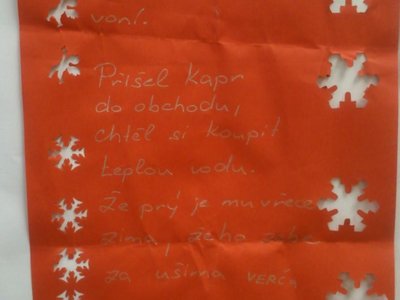 voní.
Přišel kapr
do obchodu,
chtěl si koupit
teplou vodu.
Že prý je mu vřece
zima, že ho zebe
za ušima